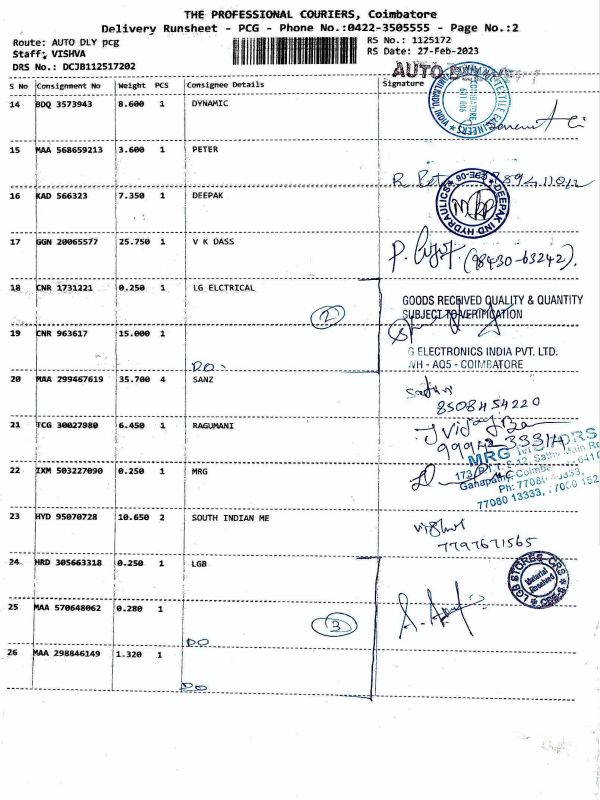 THE PROFESSIONAL COURIERS, Coimbatore
Delivery Runsheet - PCG - Phone No.:0422-3505555 - Page No.:2
Route: AUTO DLY pcg
Staff: VISHVA
DRS No.: DCJB112517202
RS No.: 1125172
RS Date: 27-Feb-2023
S No Consignment No Weight PCS Consignee Details Signature
14 BDQ 3573943 8.600 1 DYNAMIC
15 MAA 568659213 3.600 1 PETER
16 KAD 566323 7.350 1 DEEPAK
DEEPAK IND HYDRAULICS
17 GGN 20065577 25.750 1 V K DASS
(98430-63242).
18 CNR 1731221 0.250 1 LG ELCTRICAL
2
GOODS RECEIVED QUALITY & QUANTITY
SUBJECT TO VERIFICATION
19 CNR 963617 15.000 1
DO
G ELECTRONICS INDIA PVT. LTD.
WH - AQ5 - COIMBATORE
20 MAA 299467619 35.700 4 SANZ
8508454220
21 TCG 30027980 6.450 1 RAGUMANI
22 IXM 503227090 0.250 1 MRG
MRG
77080 13333,
23 HYD 95070728 10.650 2 SOUTH INDIAN ME
7797671565
24 HRD 305663318 0.250 1 LGB
LGB STORES-CRS
Material
Received
25 MAA 570648062 0.280 1
3
DO
26 MAA 298846149 1.320 1
DO